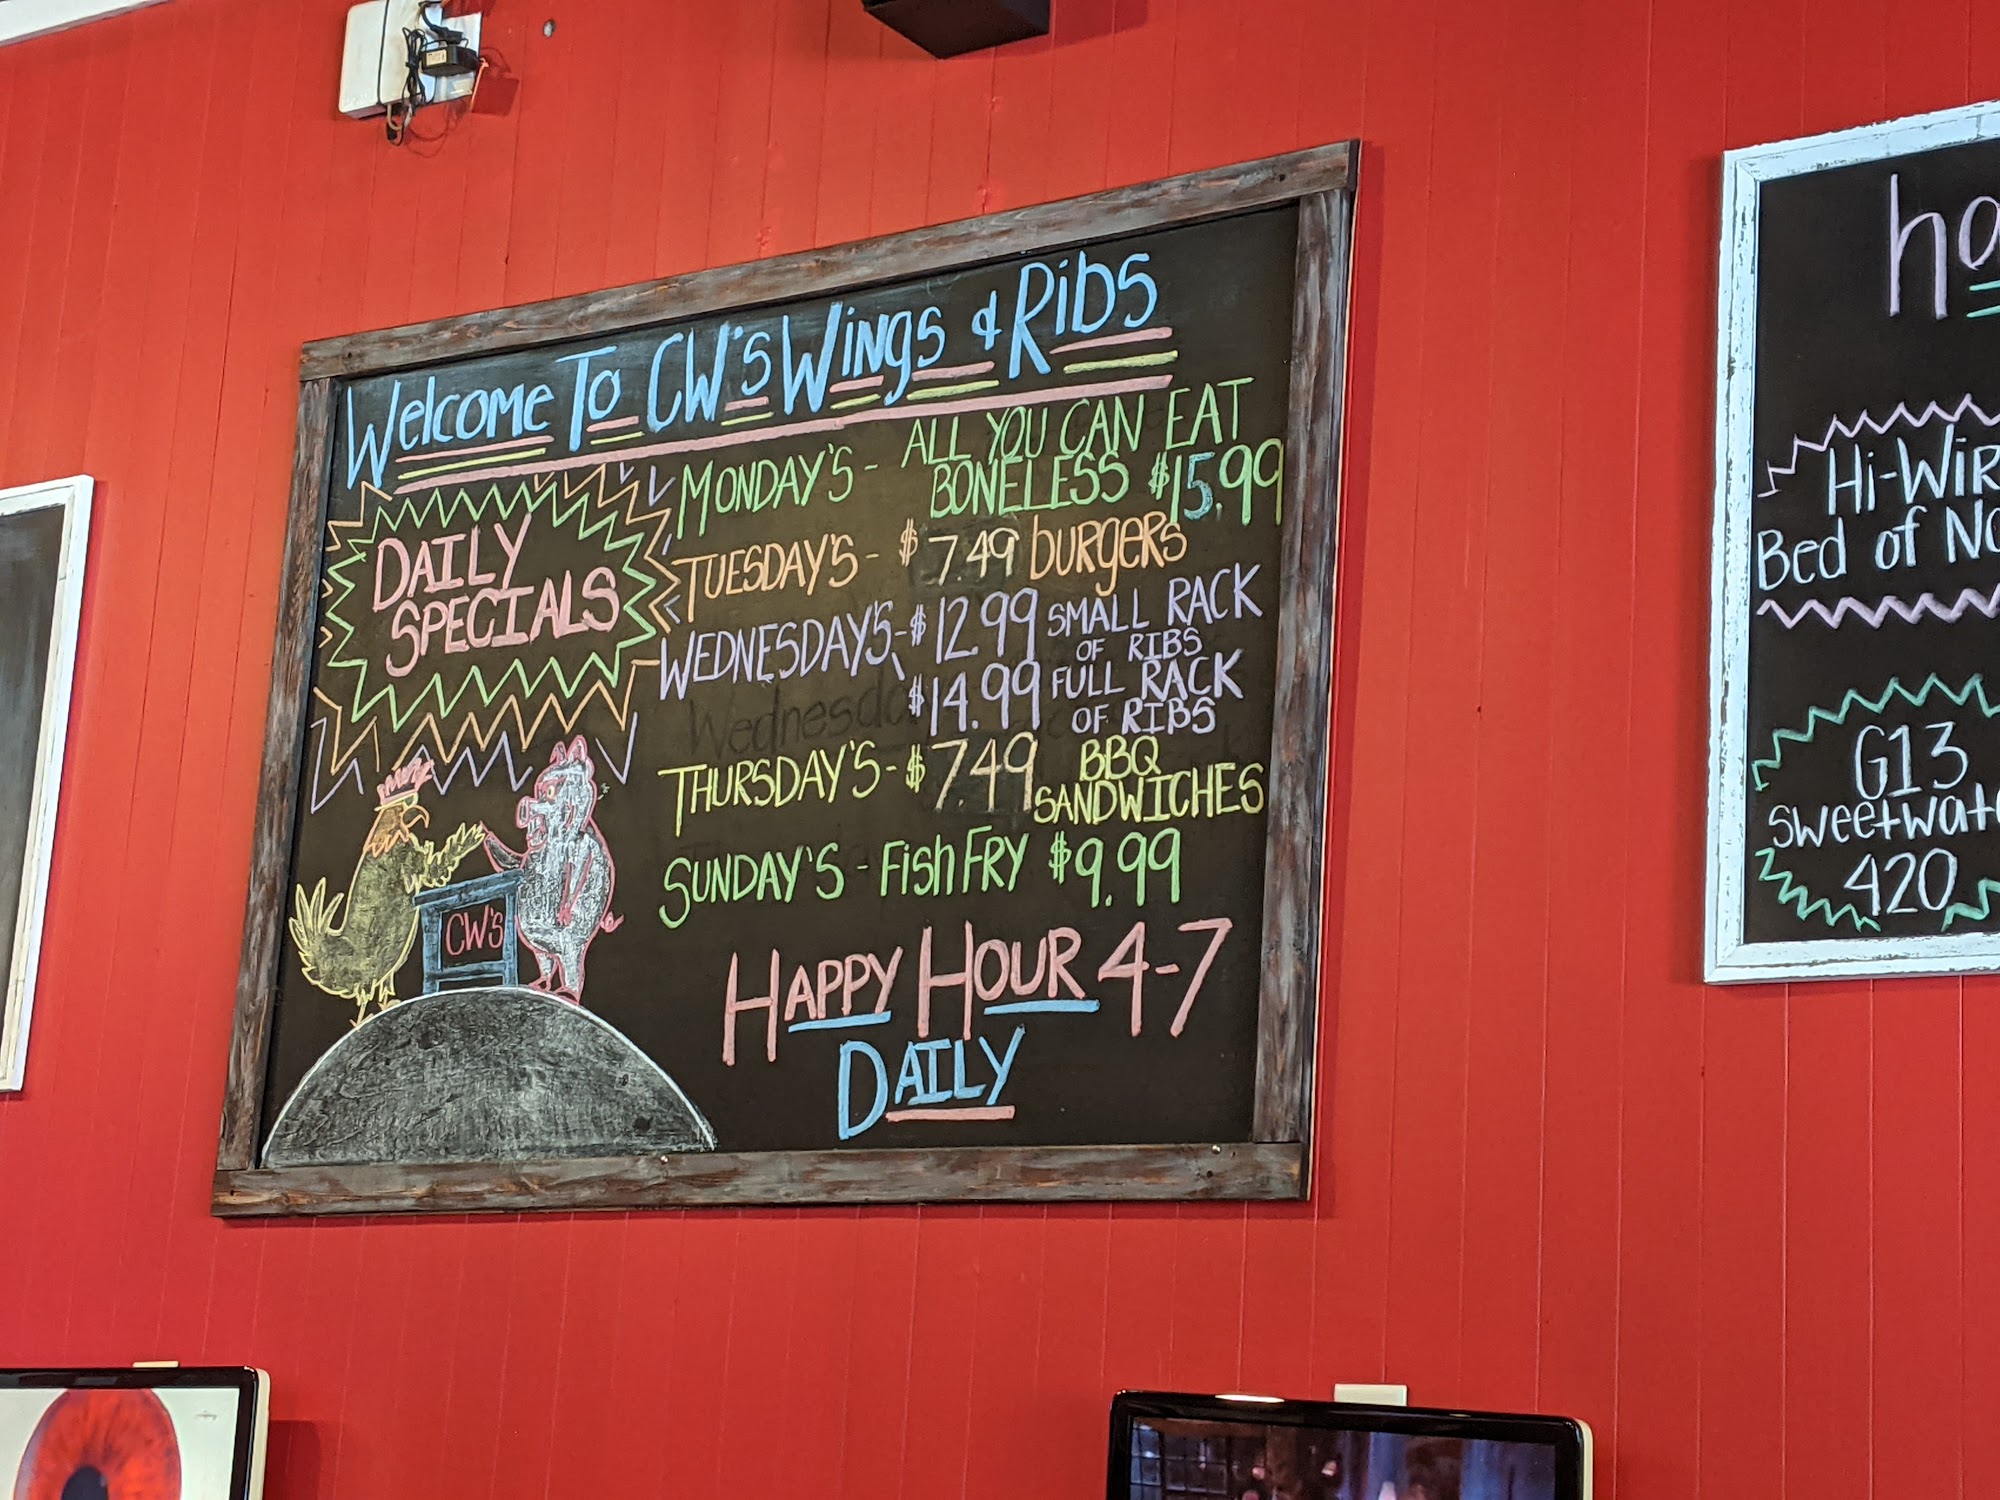 Welcome To CW's Wings & Ribs
DAILY
SPECIALS
MONDAY'S - ALL YOU CAN EAT
BONELESS $15.99
TUESDAY'S - $7.49 burgers
WEDNESDAY'S - $12.99 SMALL RACK
OF RIBS
$14.99 FULL RACK
OF RIBS
THURSDAY'S - $7.49 BBQ
SANDWICHES
SUNDAY'S - Fish FRY $9.99
HAPPY HOUR 4-7
DAILY
CW's
Hi-Wir
Bed of
G13
Sweetwat
420